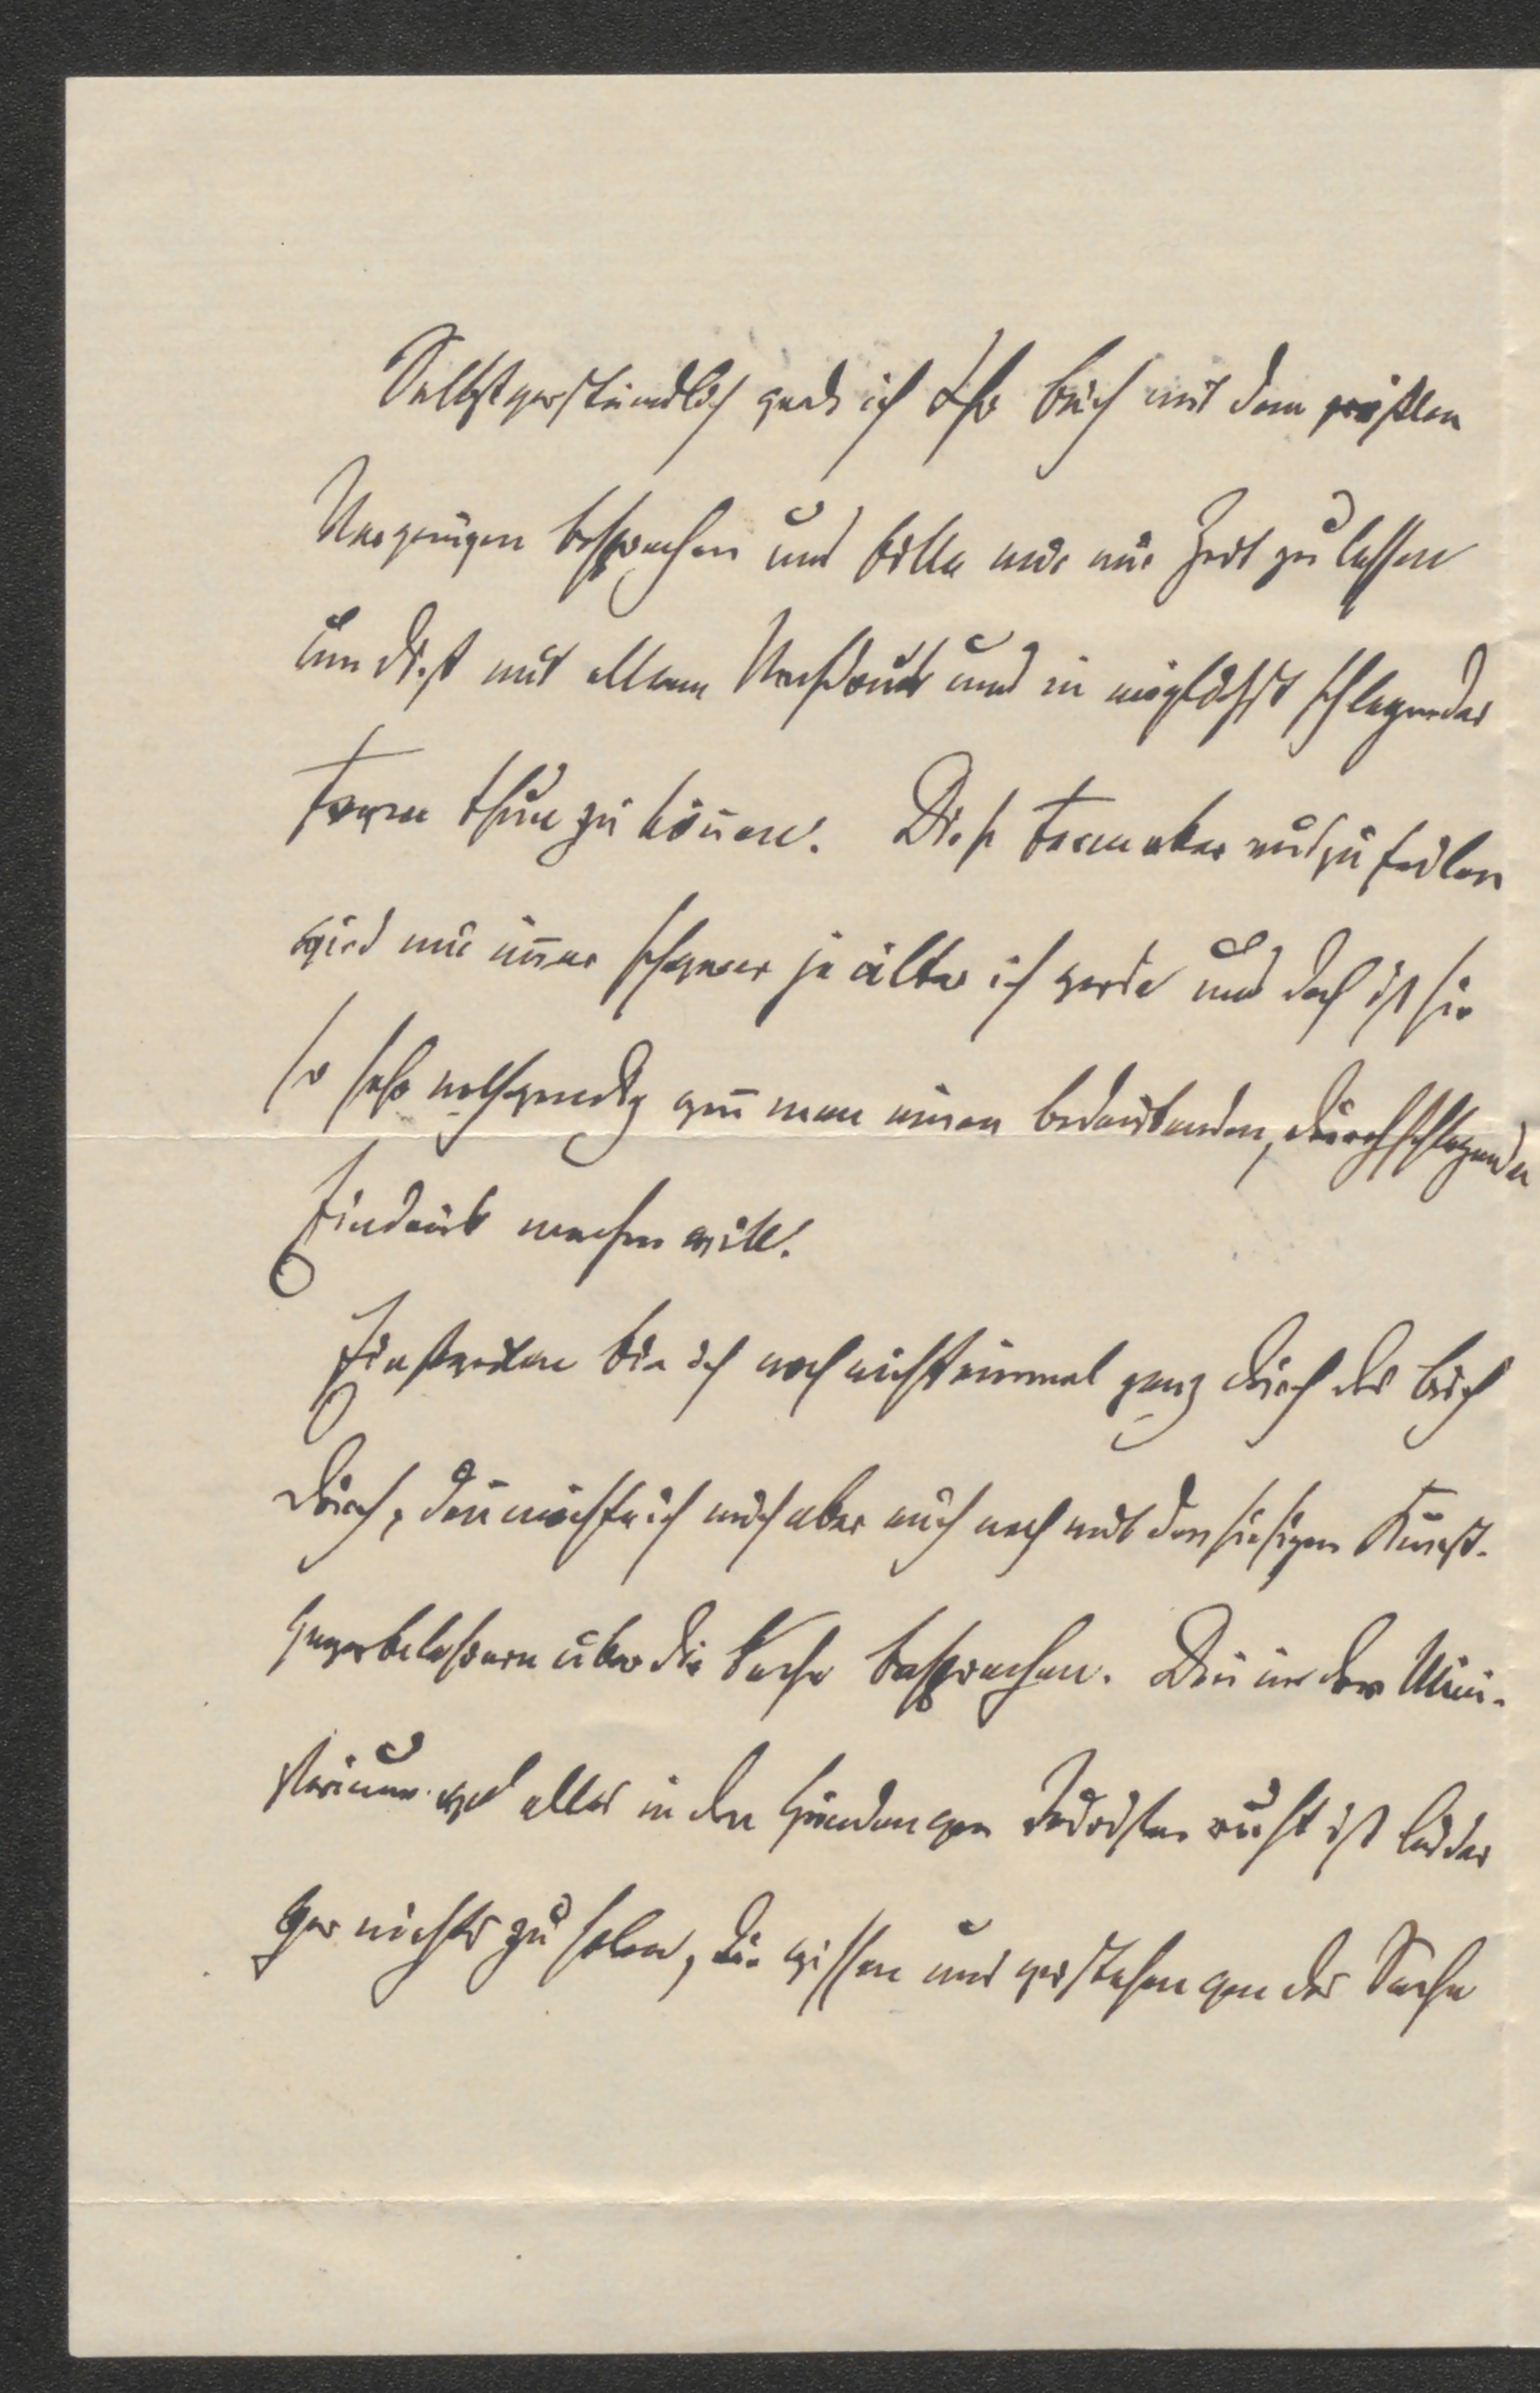 Selbstverständlich werde ich Ihr Buch mit dem größten
Vergnügen besprechen und bitte mir nur Zeit zu lassen
um dieß mit allem Nachdruck und in möglichst schlagender
Form thun zu können. Diese Form aber mitzutheilen
wird mir im̄er schwerer je älter ich werde und doch ist sie
so sehr nothwendig wen̄ man einen bedeutenden, durchschlagenden
Eindruck machen will.
Einstweilen bin ich noch nicht einmal ganz durch das Buch
durch, dan̄ möchte ich mich aber auch noch mit den hiesigen Kunst-
gewerbelehrern über die Sache besprechen. Den̄ in dem Mini-
sterium wo alles in den Händen von Juristen ruht ist leider
gar nichts zu holen, die wissen und verstehen von der Sache